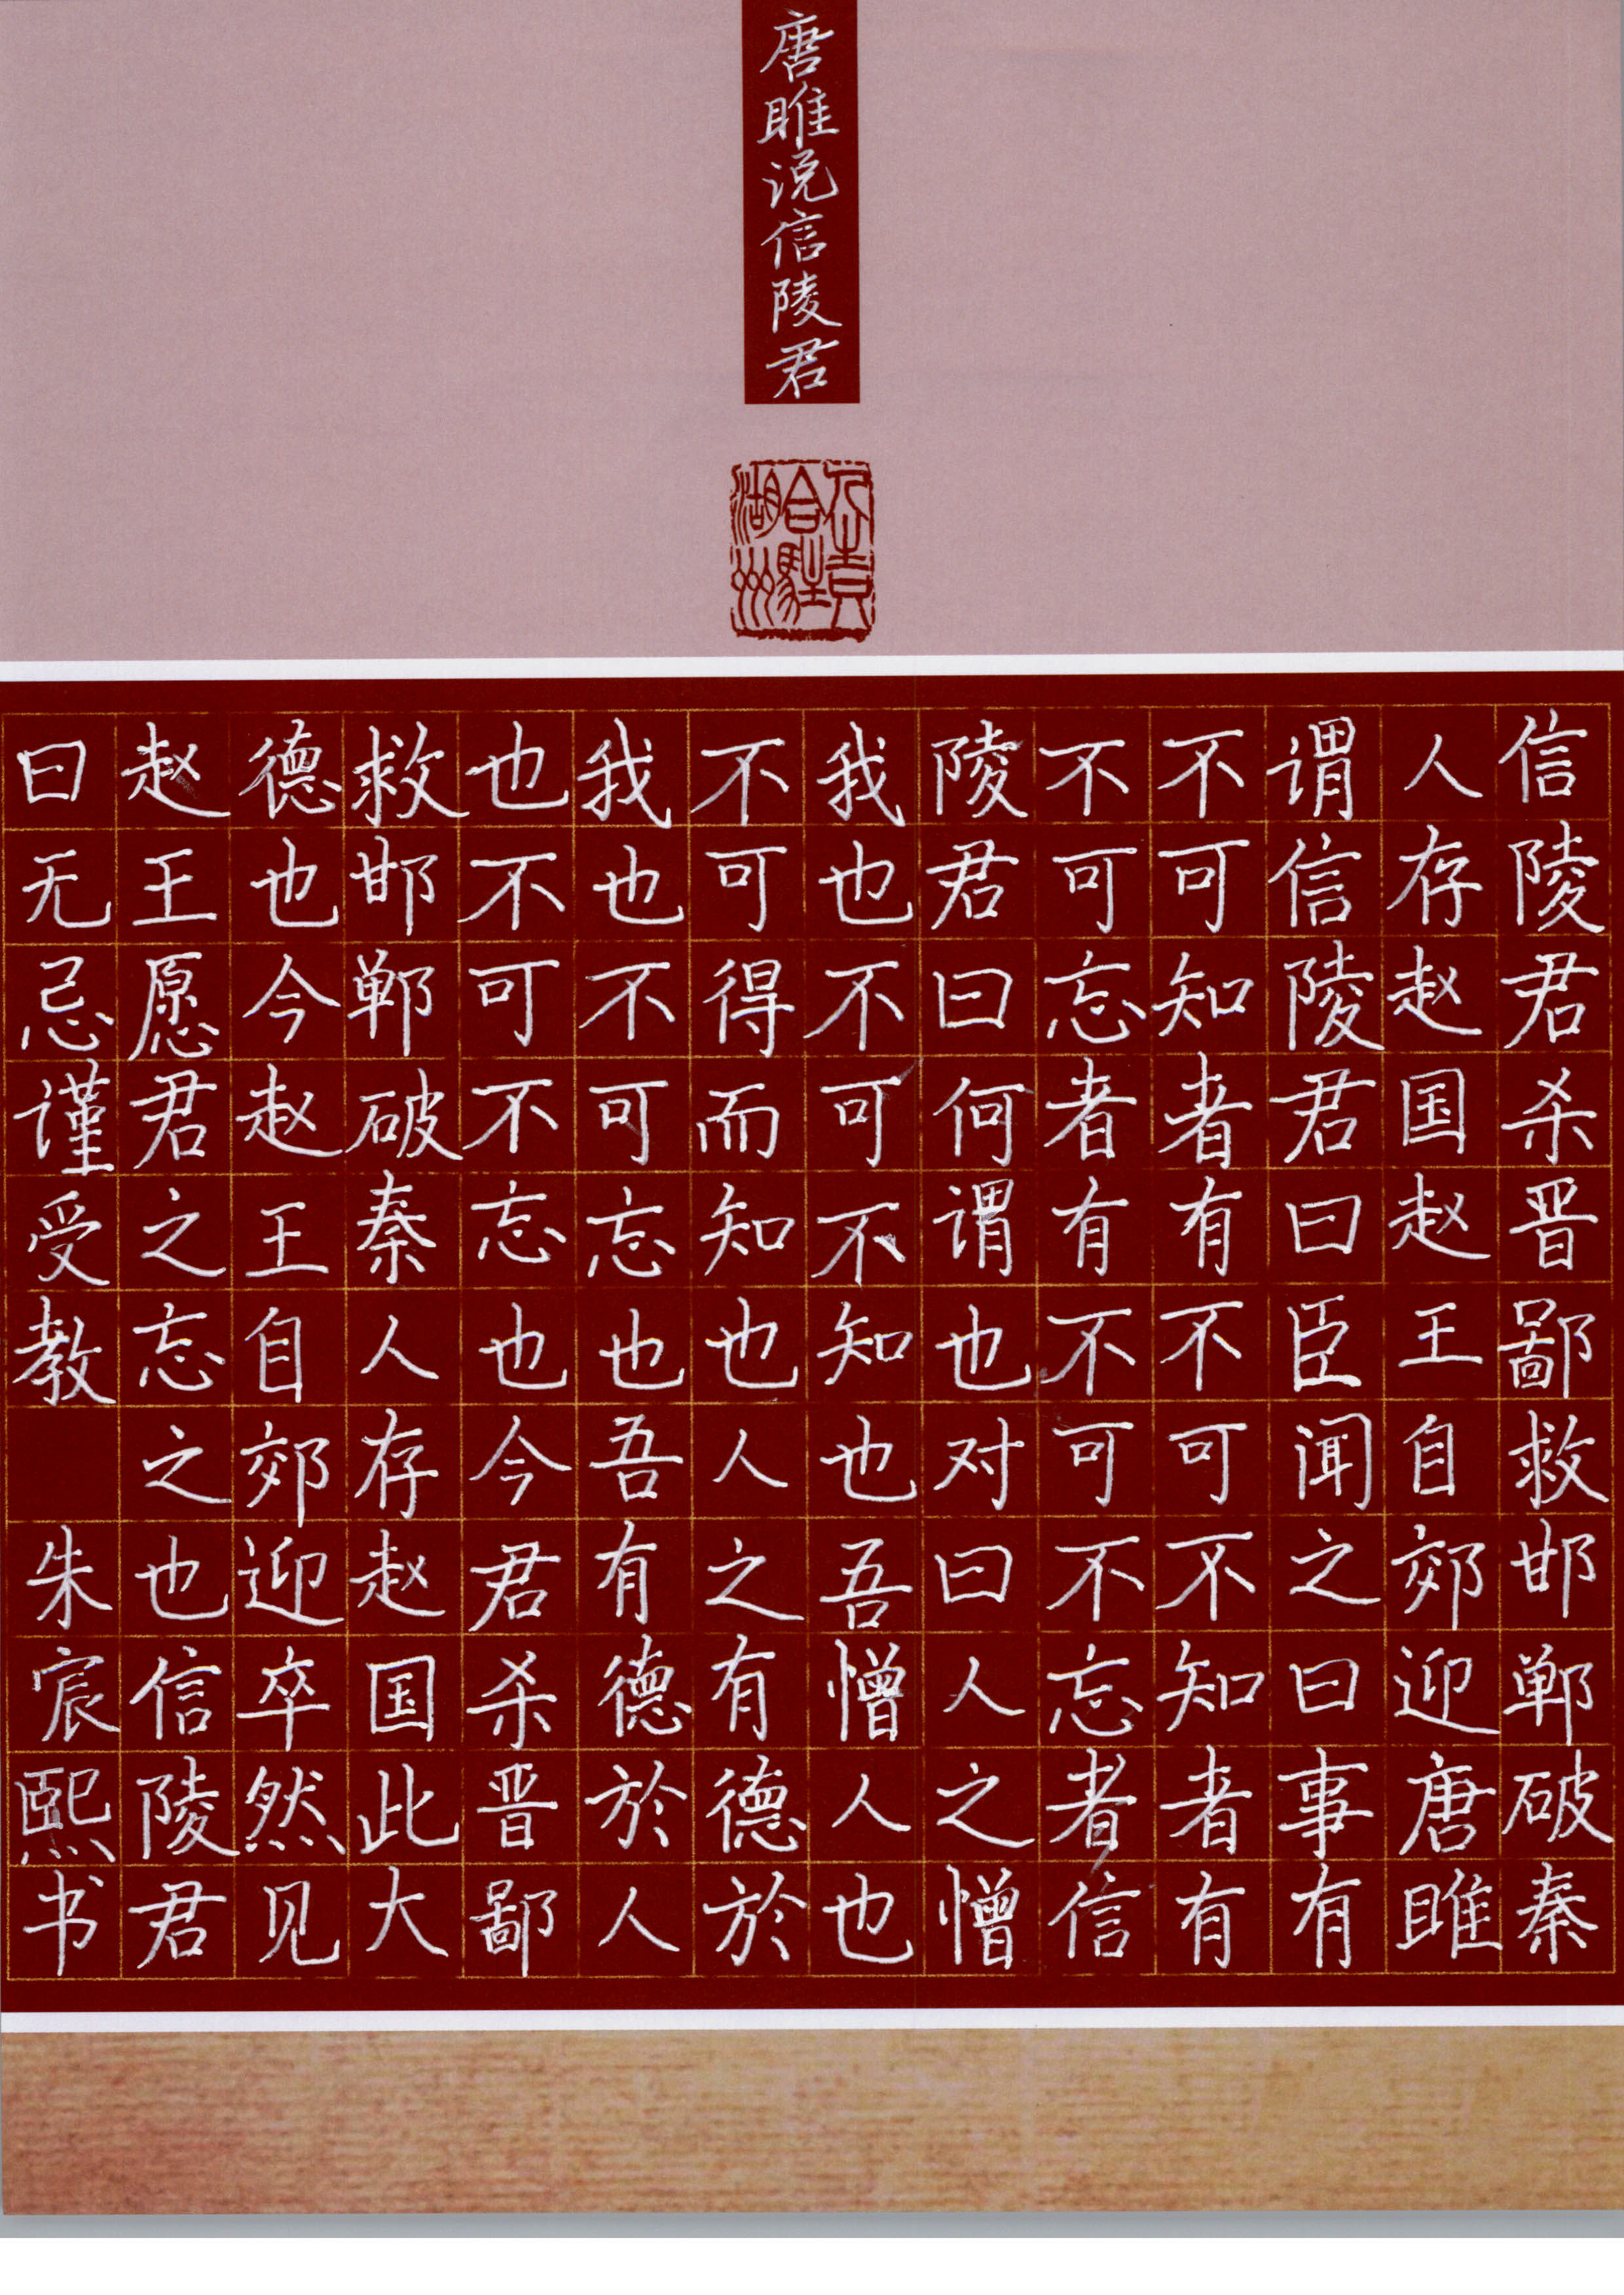 唐雎说信陵君
信陵君杀晋鄙救邯郸破秦
人存赵国赵王自郊迎唐雎
谓信陵君曰臣闻之曰事有
不可知者有不可不知者有
不可忘者有不可不忘者信
陵君曰何谓也对曰人之憎
我也不可不知也吾憎人也
不可得而知也人之有德於
我也不可忘也吾有德於人
也不可不忘也今君杀晋鄙
救邯郸破秦人存赵国此大
德也今赵王自郊迎卒然见
赵王愿君之忘之也信陵君
曰无忌谨受教 朱宸熙书
湖州